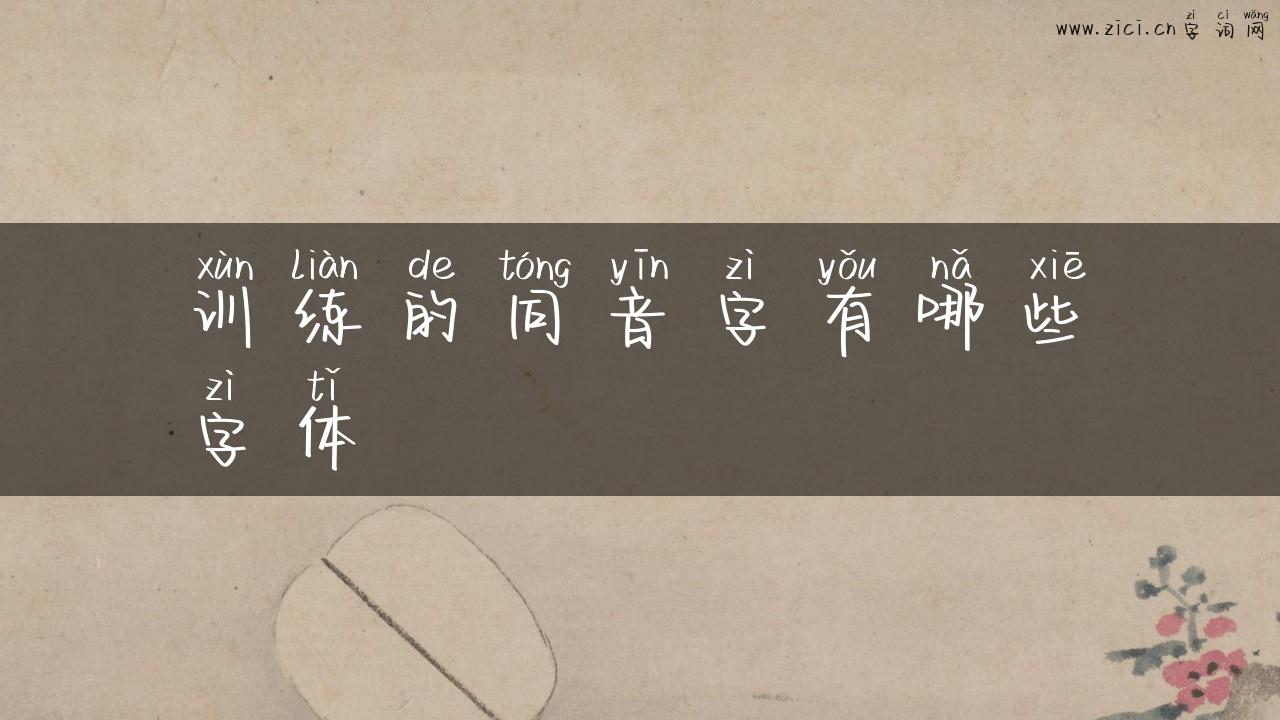 zì cí wǎng
www.zici.cn 字词网
xùn liàn de tóng yīn zì yǒu nǎ xiē
训练的同音字有哪些
zì tǐ
字体